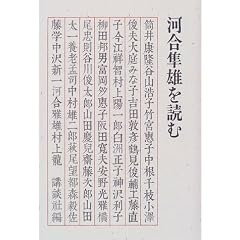 河合隼雄を読む
筒井康隆谷山浩子竹宮恵子中根千枝小澤
俊夫大庭みな子吉田敦彦鶴見俊輔工藤直
子今江祥智村上陽一郎白洲正子神沢利子
柳田邦男富岡多惠子阪田寛夫安野光雅横
尾忠則谷川俊太郎山田慶兒斎藤次郎山田
太一養老孟司中村雄二郎萩尾望都森毅佐
藤学中沢新一河合雅雄村上龍 講談社編